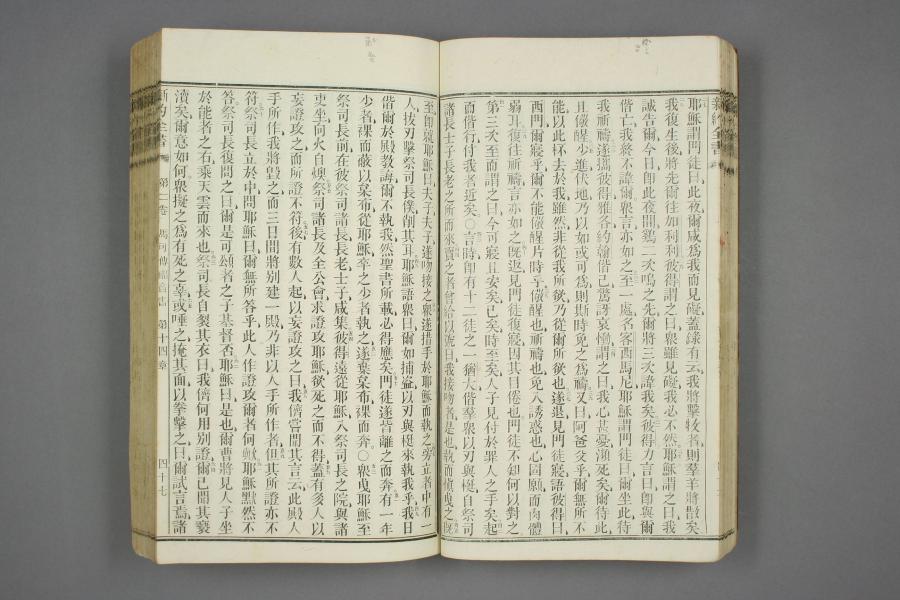 新約全書
耶穌謂門徒曰此夜爾咸爲我而見礙蓋錄有云我將擊牧者則羣羊將散矣
我復生後將先爾往加利利彼得謂之曰衆雖見礙我必不然耶穌謂之曰我
誠告爾今日卽此夜間鷄二次鳴之先爾將三次諱我矣彼得力言曰卽與爾
偕亡我終不諱爾衆言亦如之至一處名客西馬尼耶穌謂門徒曰爾坐此待
我祈禱遂攜彼得雅各約翰偕己驚訝哀慟謂之曰我心甚憂瀕死矣爾待此
且儆醒少進伏地乃以如或可爲則斯時免之爲禱又曰阿爸父乎爾無所不
能以此杯去於我雖然非從我所欲乃從爾所欲也遂退見門徒寢語彼得曰
西門爾寢乎爾不能儆醒片時乎儆醒也祈禱也免入誘惑也心固願而肉體
弱耳復往祈禱言亦如之旣返見門徒復寢因其目倦也門徒不知何以對之
第三次至而謂之曰今可寢且安矣已矣時至矣人子見付於罪人之手矣起
而偕行付我者近矣〇言時卽有十二徒之一猶大偕羣衆以刃與梃自祭司
諸長士子長老之所而來賣之者曾給以號曰我接吻者是也執而愼曳之旣
至卽就耶穌曰夫子夫子遂吻接之衆遂措手於耶穌而執之旁立者中有一
人拔刃擊祭司長僕削其耳耶穌語衆曰爾如捕盜以刃與梃來執我乎我日
偕爾於殿敎誨爾不執我然聖書所載必得應矣門徒遂皆離之而奔有一年
少者裸而蔽以枲布從耶穌卒之少者執之遂棄枲布裸而奔〇衆曳耶穌至
祭司長前在彼祭司諸長長老士子咸集彼得遠從耶穌入祭司長之院與諸
吏坐向火自煖祭司諸長及全公會求證攻耶穌欲死之而不得蓋有多人以
妄證攻之而所證不符後有數人起以妄證攻之曰我儕嘗聞其言云此殿人
手所作我將毀之而三日間將別建一殿乃非以人手所作者但其所證亦不
符祭司長立於中問耶穌曰爾無所答乎此人作證攻爾者何歟耶穌默然不
答祭司長復問之曰爾是可頌者之子基督否耶穌曰是也爾曹將見人子坐
於能者之右乘天雲而來也祭司長自裂其衣曰我儕何用別證爾已聞其褻
瀆矣爾意如何衆擬之爲有死之辜或唾之掩其面以拳擊之曰爾試言焉諸
新約全書 第二卷 馬可傳福音書 第十四章 四十七